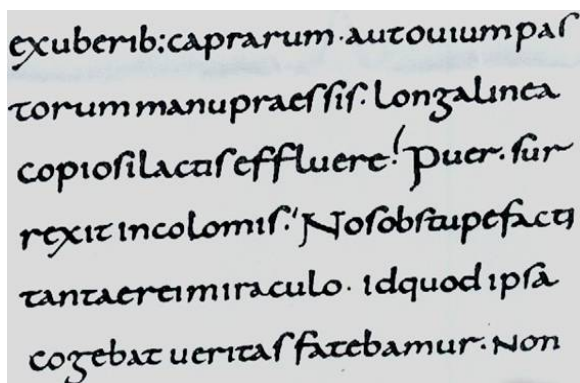 exuberib; caprarum · aut ouium pas
torum manu praessis · longa linea
copiosi lactis effluere ! Puer · sur
rexit incolomis · ' Nos obstupefacti
tantae rei miraculo · id quod ipsa
cogebat ueritas fatebamur · Non